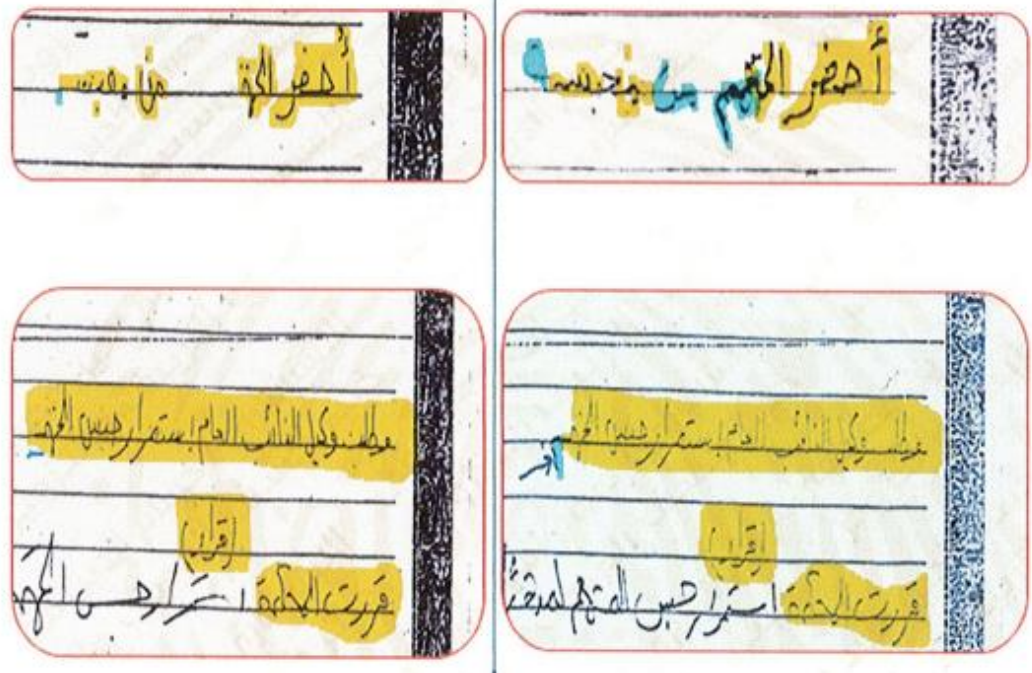 أحضر المتهم من محبسه
وطلب وكيل النائب العام استمرار حبس المتهـ
(قرار)
قررت المحكمة استمرار حبس المتهم لمدة
أحضر من محبسـ
وطلب وكيل النائب العام استمرار حبس المتهـ
(قرار)
قررت المحكمة استمرار حبس المتهـ